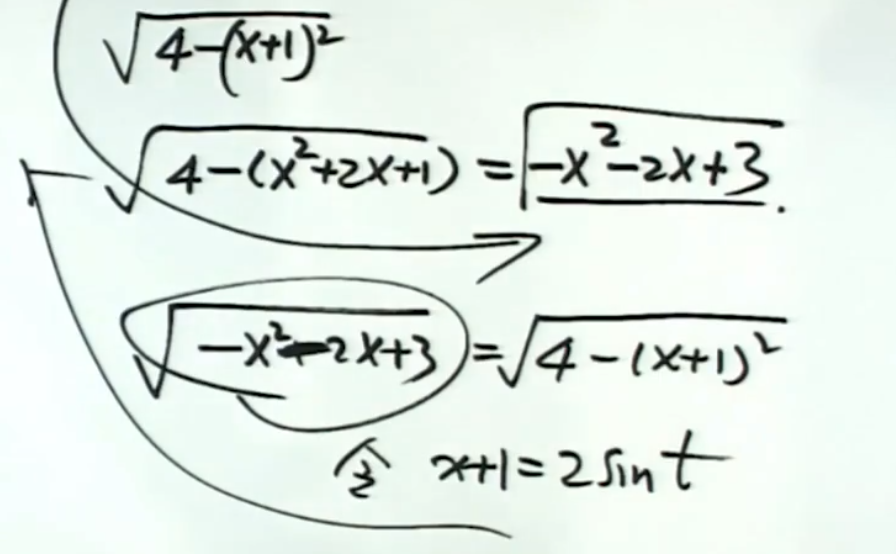 √(4-(x+1)²)
√(4-(x²+2x+1)) = √(-x²-2x+3).
√(-x²-2x+3) = √(4-(x+1)²)
令 x+1=2sint